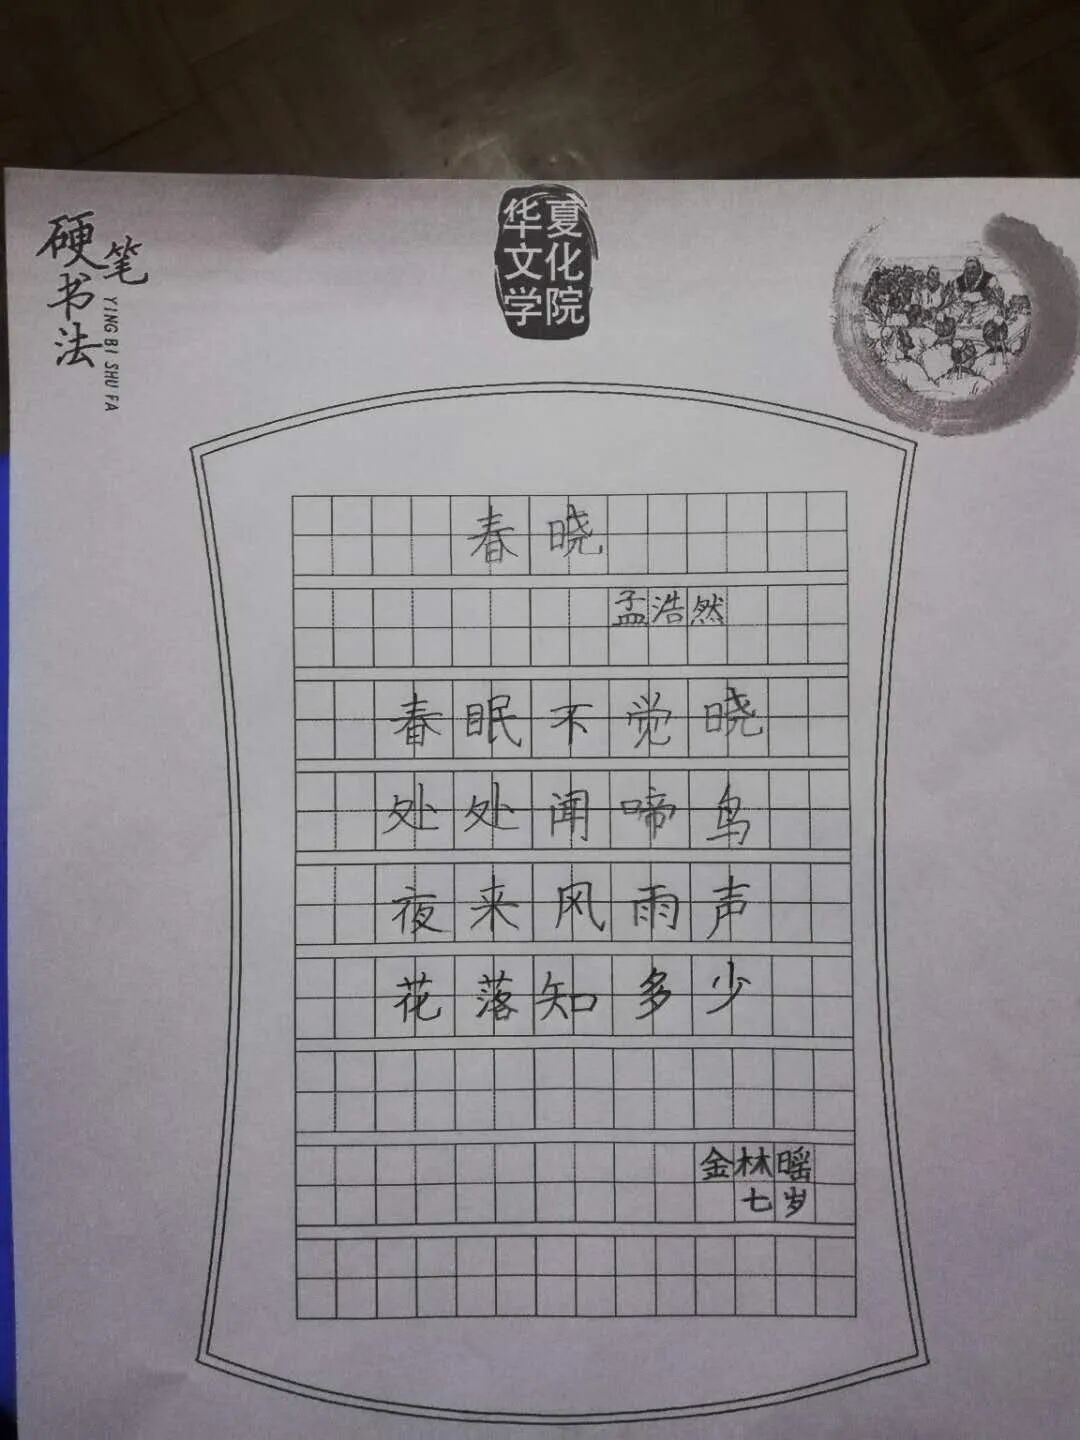 硬笔书法
YING BI SHU FA
华夏
文化
学院
春晓
孟浩然
春眠不觉晓
处处闻啼鸟
夜来风雨声
花落知多少
金林暚
七岁